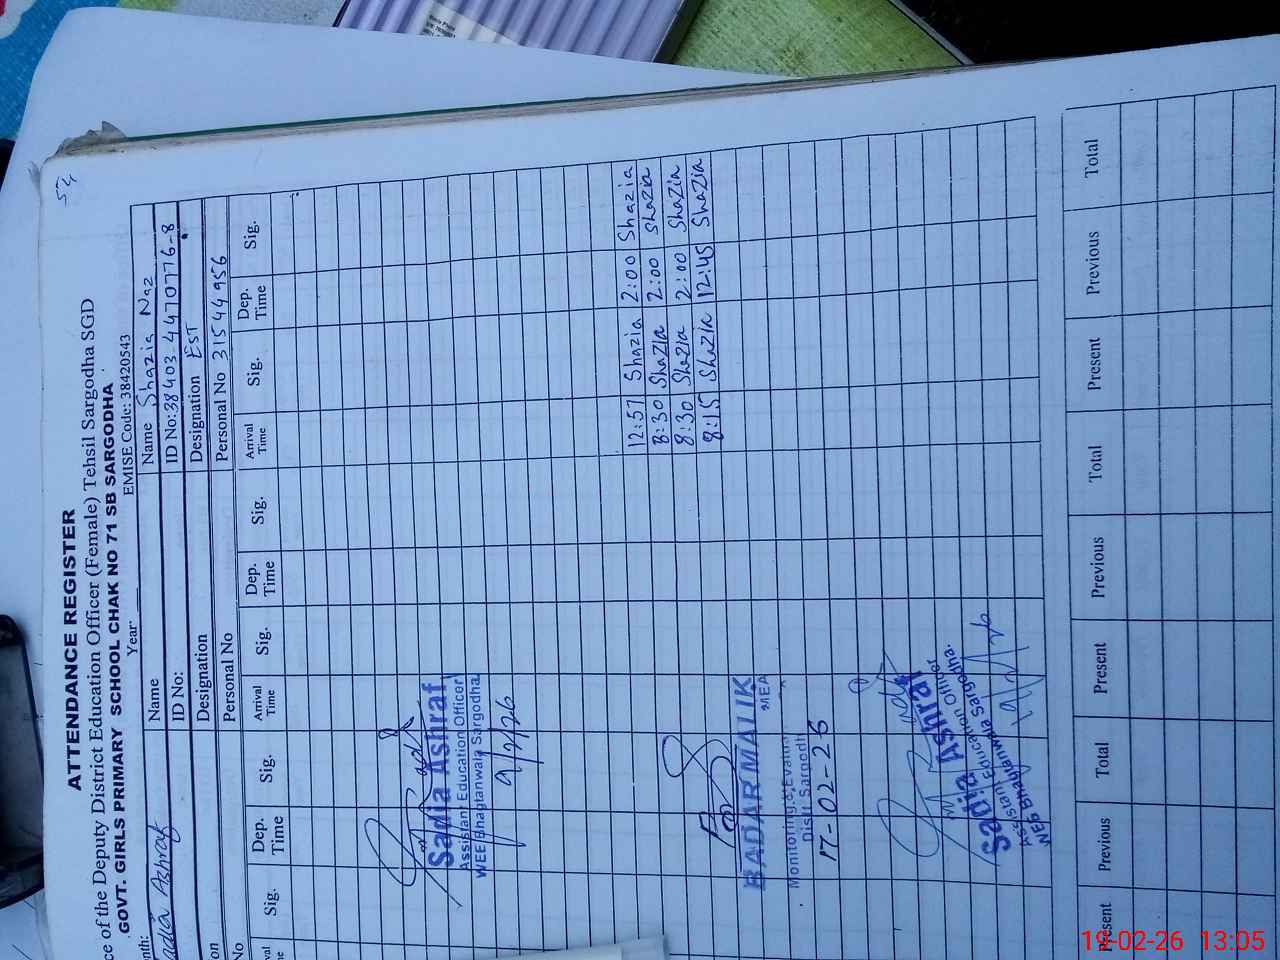 54
ATTENDANCE REGISTER
ce of the Deputy District Education Officer (Female) Tehsil Sargodha SGD
GOVT. GIRLS PRIMARY SCHOOL CHAK NO 71 SB SARGODHA
Year
EMISE Code: 38420543
nth:
adia Ashraf
Name
Name Shazia Naz
ID No:
ID No:38403-4470776-8
on
Designation
Designation EST
No
Personal No
Personal No 31544956
val
me
Sig.
Dep.
Time
Sig.
Arrival
Time
Sig.
Dep.
Time
Sig.
Arrival
Time
Sig.
Dep.
Time
Sig.
Sadia Ashraf
Assistant Education Officer
WEE Bhagtanwala Sargodha
9/2/26
12:57 Shazia 2:00 Shazia
8:30 Shazia 2:00 Shazia
8:30 Shazia 2:00 Shazia
8:15 Shazia 12:45 Shazia
BADAR MALIK
MEA
Monitoring & Evalua
Distt Sargodh
17-02-26
Sadia Ashraf
Assistant Education Officer
WEE Bhagtanwala Sargodha.
Present
Previous
Total
Present
Previous
Total
Present
Previous
Total
19-02-26 13:05